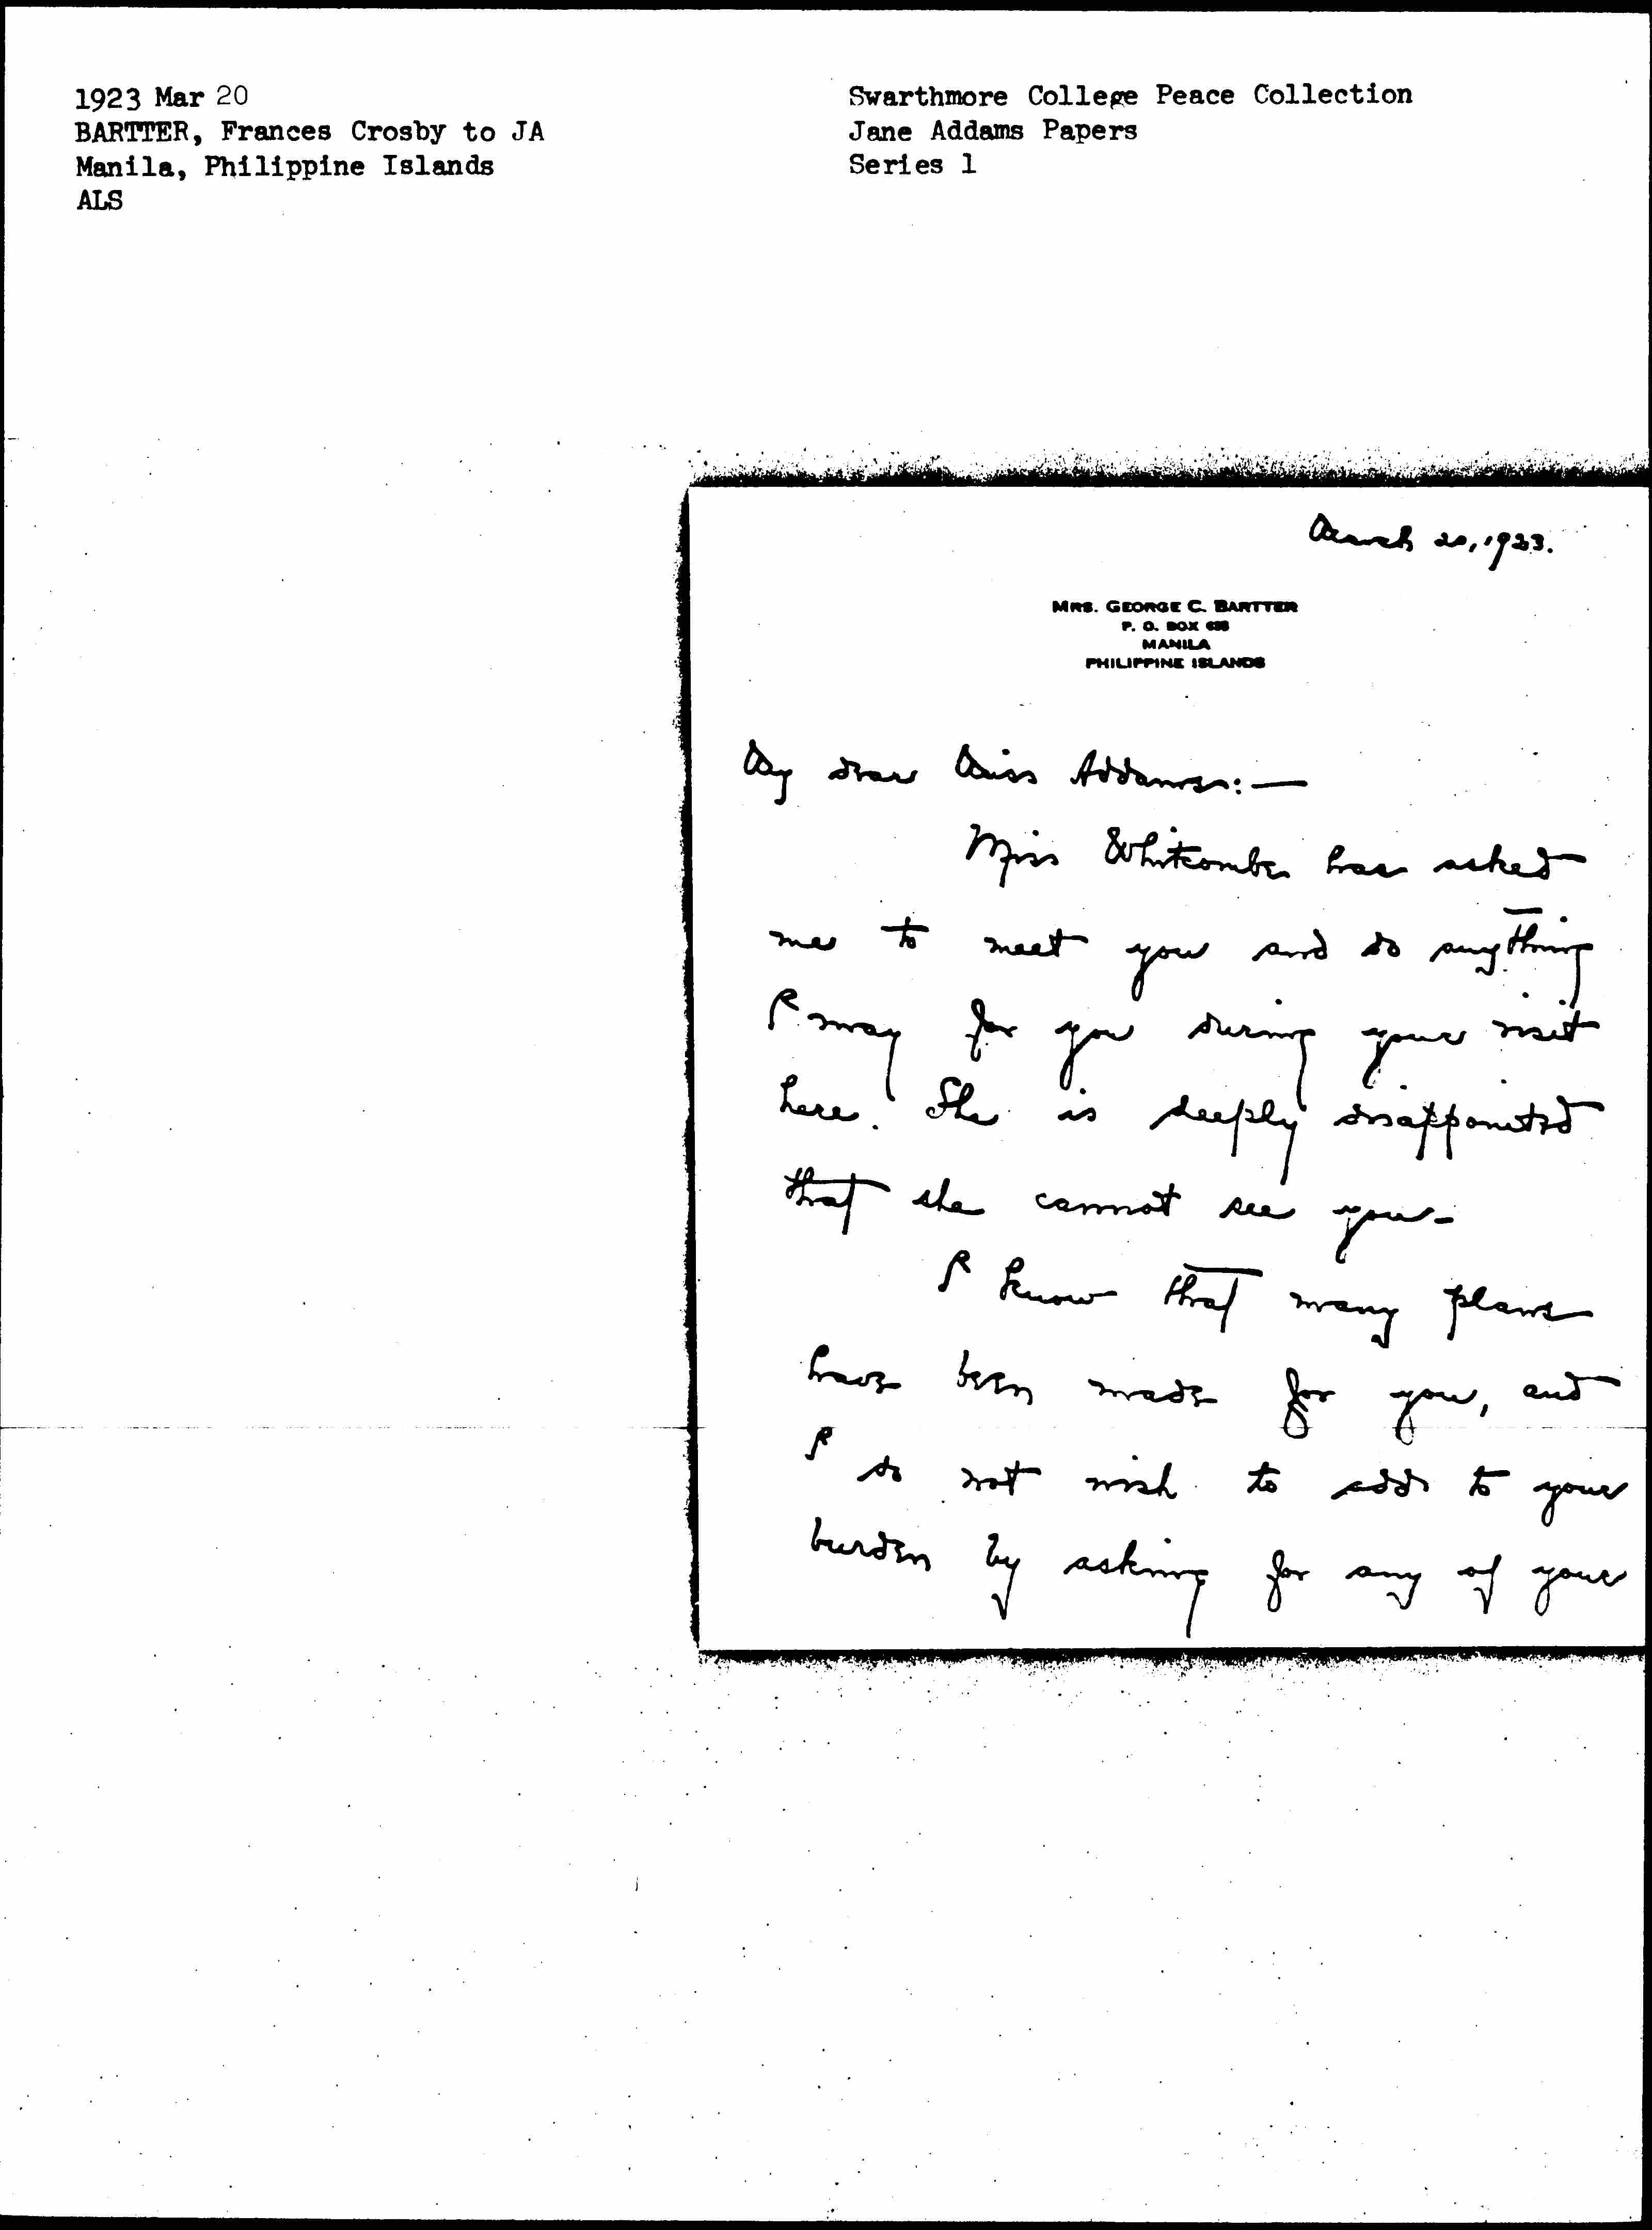 1923 Mar 20
BARTTER, Frances Crosby to JA
Manila, Philippine Islands
ALS
Swarthmore College Peace Collection
Jane Addams Papers
Series 1
March 20, 1923.
MRS. GEORGE C. BARTTER
P. O. BOX
MANILA
PHILIPPINE ISLANDS
My dear Miss Addams:—
Miss Whitcombe has asked
me to meet you and do anything
I may for you during your visit
here. She is deeply disappointed
that she cannot see you-
I know that many plans
have been made for you, and
I do not wish to add to your
burden by asking for any of your